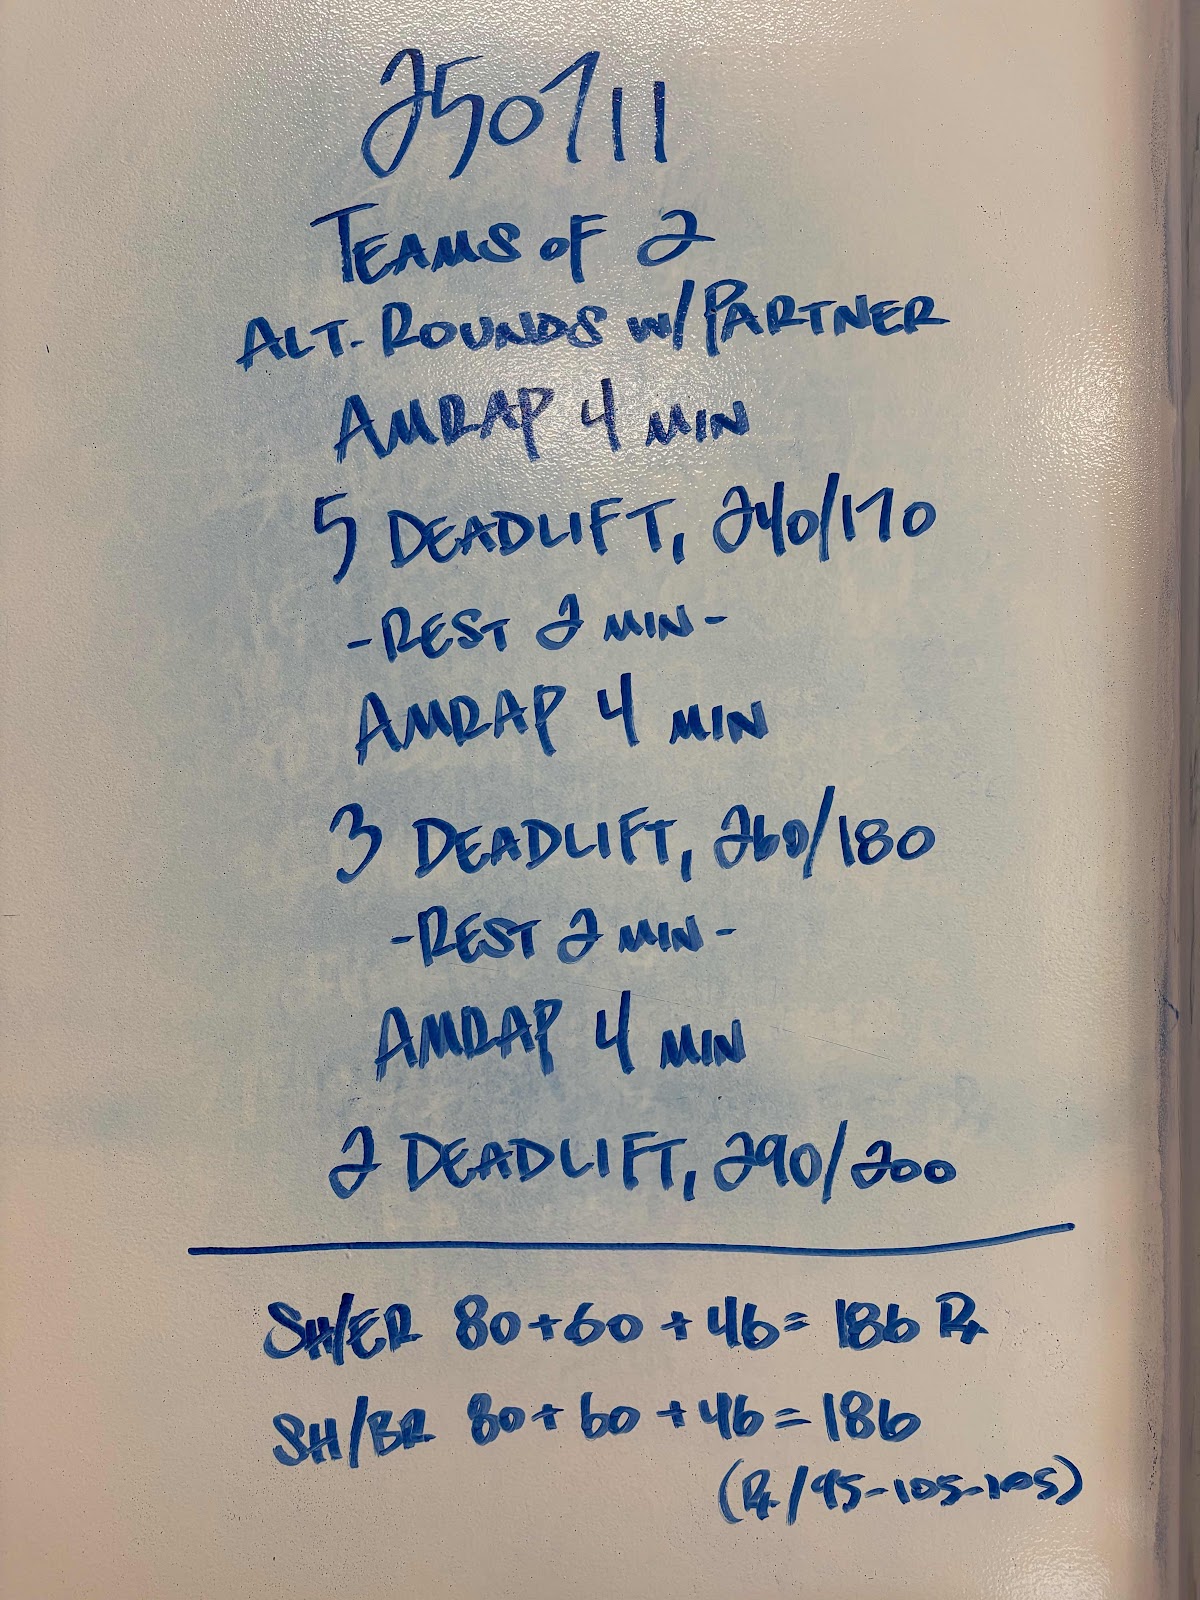 250711
TEAMS OF 2
ALT. ROUNDS W/ PARTNER
AMRAP 4 MIN
5 DEADLIFT, 240/170
-REST 2 MIN-
AMRAP 4 MIN
3 DEADLIFT, 260/180
-REST 2 MIN-
AMRAP 4 MIN
2 DEADLIFT, 290/200
SH/ER 80+60+46=186 Rx
SH/BR 80+60+46=186
(Rx/95-105-105)